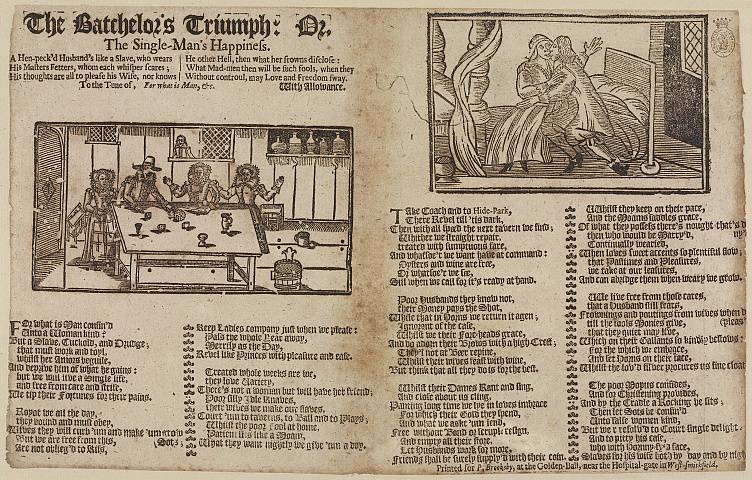 The Batchelor's Triumph: Or,
The Single-Man's Happiness.
A Hen-peck'd Husband's like a Slave, who wears
His Masters Fetters, whom each whisper scares;
His thoughts are all to please his Wife, nor knows
He other Hell, then what her frowns disclose:
What Mad-men then will be such fools, when they
Without controul, may Love and Freedom sway.
To the Tune of, For what is Man, &c. With Allowance.
FOr what is Man confin'd
Unto a Woman kind?
But a Slave, Cuckold, and Drudge;
that must work and toyl,
whilst her
And deprive him of what he gains:
but we will live a Single life,
and free from care and strife,
We tip their Fortunes for their pains.
we all the day,
they bound and must obey,
Wives they will curb 'um and make 'um
But we are free from this, Sot;
Are not oblieg'd to Kiss,
Keep Ladies company just when we please:
Pass the whole Year away,
Merrily as the Day,
Revel like Princes with pleasure and ease.
Created whole weeks are we,
they love Variety,
There's not a woman but will have her friend;
Poor silly Idle
their wives we make our slaves,
Court 'um to taverns, to Ball and to Plays;
Whilst the poor Fool at home,
Pattern like a
What they want nightly we give 'um a day.
TAke Coach and to Hide-Park,
There Revel till 'tis dark,
Then with all speed the next tavern we find;
Whither we straight repair,
treated with sumptuous fare,
And whatsoe'r we want have at command:
Oysters and wine are free,
Or whatsoe'r we see,
Still when we call for it's ready at hand.
Poor Husbands they know not,
their Money pays the Shot,
Whilst that in Horns we return it agen;
Ignorant of the case,
Whilst we their Fore-heads grace,
And do adorn their Brows with a high Crest;
They'l not at Beer repine,
Whilst their wives feast with wine,
But think that all they do is for the best.
Whilst their Dames Rant and sing,
And close about us cling,
Panting long time we lye in loves imbrace
For which their Gold they spend,
And what we ask 'um lend,
Free without Bond or scruple resign,
And empty all their store,
Let Husbands work for more,
Friends shall be surely supply'd with their coin.
Whilst they keep on their pace,
And the Moams saddles grace,
Of what they possess there's nought that's
then who would be Marry'd,
Continually wearied,
When loves sweet accents so plentiful flow;
that Pastimes and Pleasures,
we take at our leasures,
And can abridge them when weary we grow.
We live free from those cares,
that a Husband still fears,
Frownings and poutings from wives when
till the fools Moneys give,
that they quiet may live,
Which on their Gallants so kindly bestows:
For the which we embrace,
And set Horns on their face,
Whilst the lov'd silver procures us fine
The poor Mopus confides,
And for Christening provides,
And by the Cradle a Rocking he sits;
Then let Sots be confin'd
Unto false woman kind,
But we'r resolv'd to Court single delight
And to pitty his case,
who with Horny-fy'd face,
Slaves for his wife both by day and by
Printed for P. Brooksby, at the Golden-Ball, near the Hospital-gate in West-smithfield,